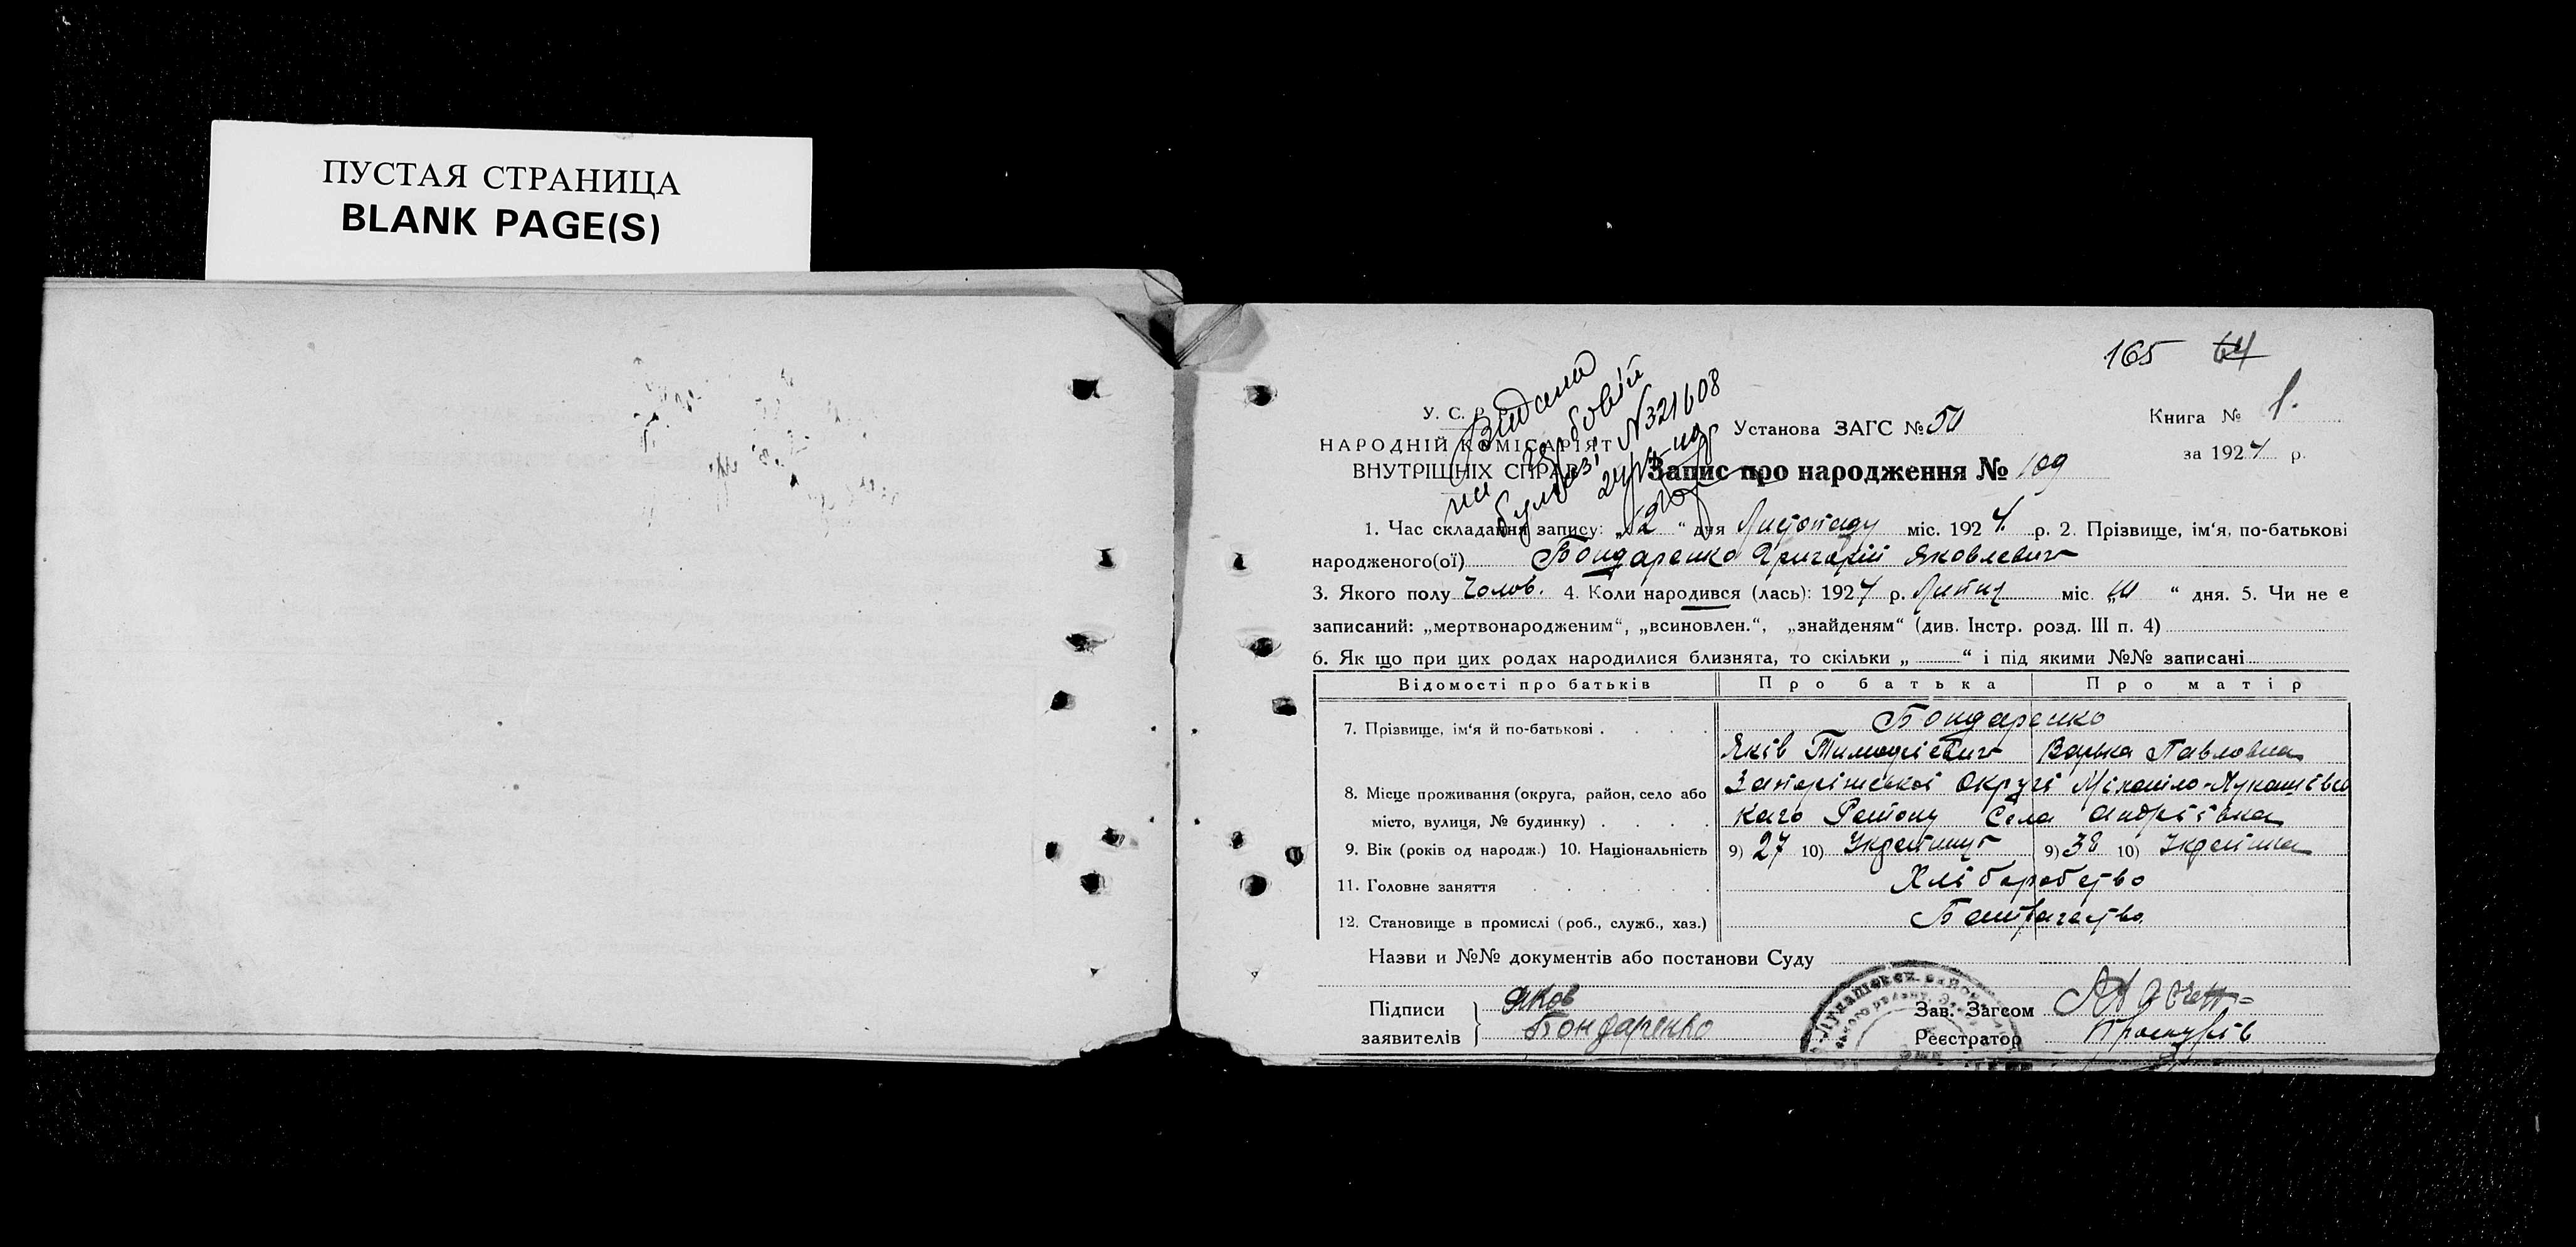 ПУСТАЯ СТРАНИЦА
BLANK PAGE(S)
165 64
У. С. Р. Р.
НАРОДНІЙ КОМІСАРІЯТ
ВНУТРІШНІХ СПРАВ
Видана
на гербовій
бумазі N321608
Установа ЗАГС № 50
Книга № 1.
за 1924 р.
Запис про народження № 109
1. Час складання запису: „12“ дня Листопаду міс. 1924. р. 2. Прізвище, ім‘я, по-батькові
народженого(ої) Бондаренко Григорій Яковлевич
3. Якого полу Чолов. 4. Коли народився (лась): 1924 р. Липня міс. „10“ дня. 5. Чи не є
записаний: „мертвонародженим“, „всиновлен.“, „знайденям“ (див. Інстр. розд. III п. 4)
6. Як що при цих родах народилися близнята, то скільки „ “ і під якими №№ записані
Відомості про батьків Про батька Про матір
7. Прізвище, ім‘я й по-батькові . . . . Бондаренко
Яків Тимофієвич Варька Павловна
8. Місце проживання (округа, район, село або Запоріжської Округі Міхайло-Лукашівсь
місто, вулиця, № будинку) . . . . каго Району Села Андріївка
9. Вік (років од народж.) 10. Національність 9) 27 10) Українець 9) 38 10) Українка
11. Головне заняття . . . . . . Хліборобство
12. Становище в промислі (роб., служб., хаз.) Батрачество
Назви и №№ документів або постанови Суду
Підписи заявителів Яков
Бондаренко
Зав. Загсом
Реєстратор